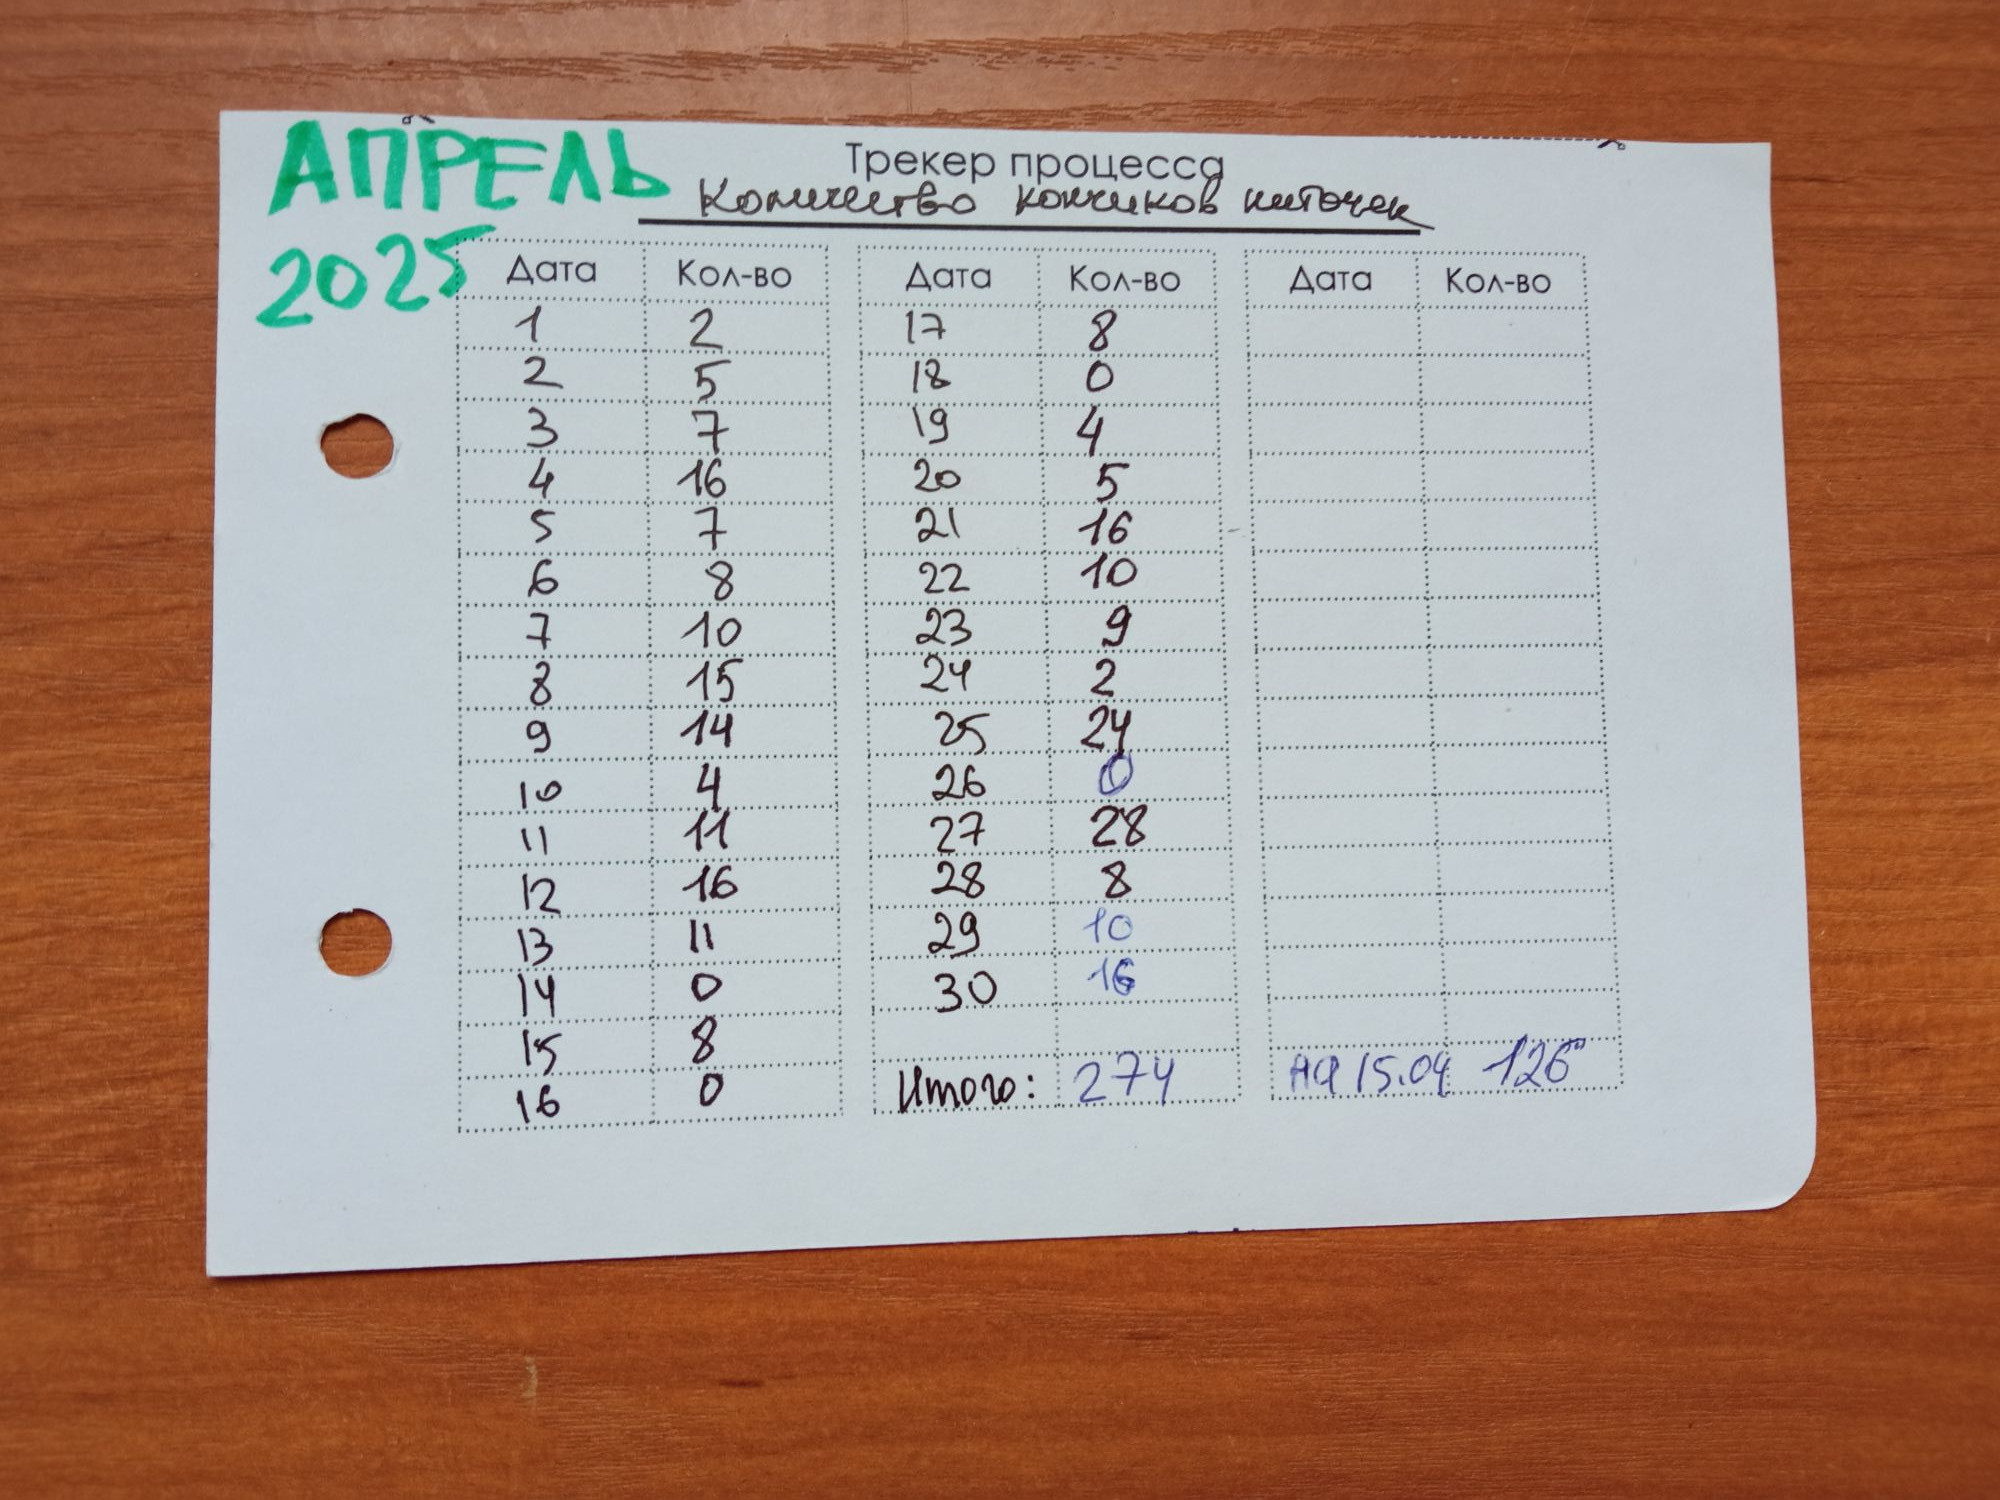 АПРЕЛЬ
2025
Трекер процесса
Количество кончиков ниточек
Дата Кол-во Дата Кол-во Дата Кол-во
1 2 17 8
2 5 18 0
3 7 19 4
4 16 20 5
5 7 21 16
6 8 22 10
7 10 23 9
8 15 24 2
9 14 25 24
10 4 26 0
11 11 27 28
12 16 28 8
13 11 29 10
14 0 30 16
15 8
16 0 Итого: 274 на 15.04 126